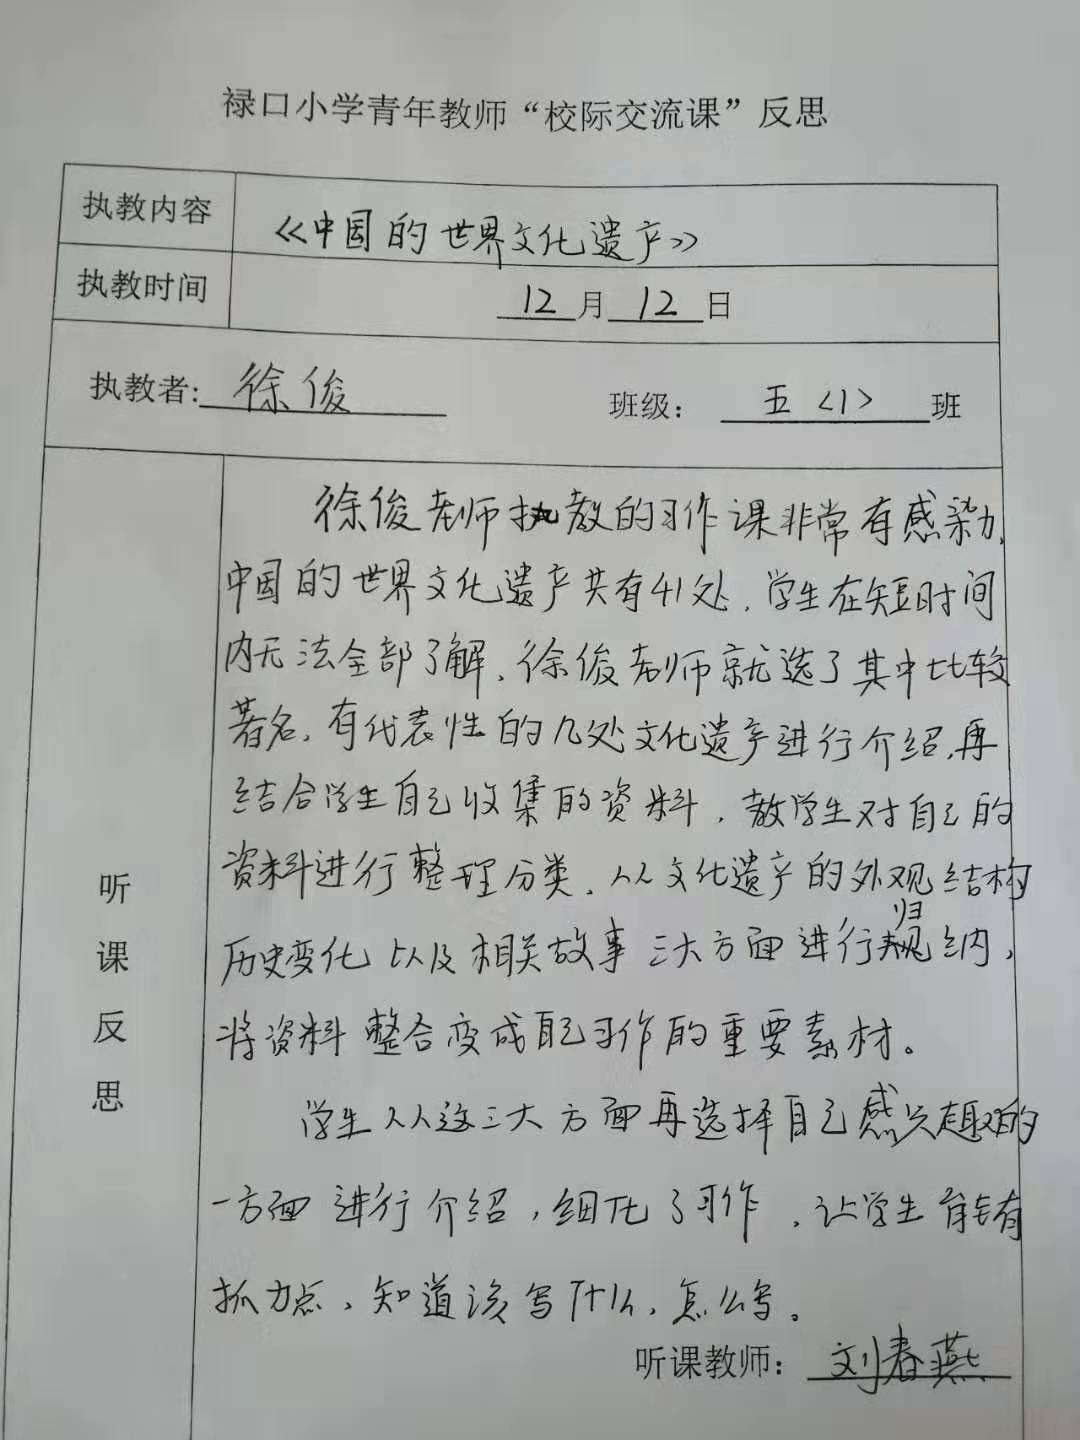 禄口小学青年教师“校际交流课”反思
执教内容 《中国的世界文化遗产》
执教时间 12月12日
执教者: 徐俊 班级: 五〈1〉班
听课反思
徐俊老师执教的习作课非常有感染力,
中国的世界文化遗产共有41处,学生在短时间
内无法全部了解,徐俊老师就选了其中比较
著名,有代表性的几处文化遗产进行介绍,再
结合学生自己收集的资料,教学生对自己的
资料进行整理分类,从文化遗产的外观结构
历史变化以及相关故事三大方面进行归纳,
将资料整合变成自己习作的重要素材。
学生从这三大方面再选择自己感兴趣的
一方面进行介绍,细化了习作,让学生能有
抓力点,知道该写什么,怎么写。
听课教师: 刘春燕